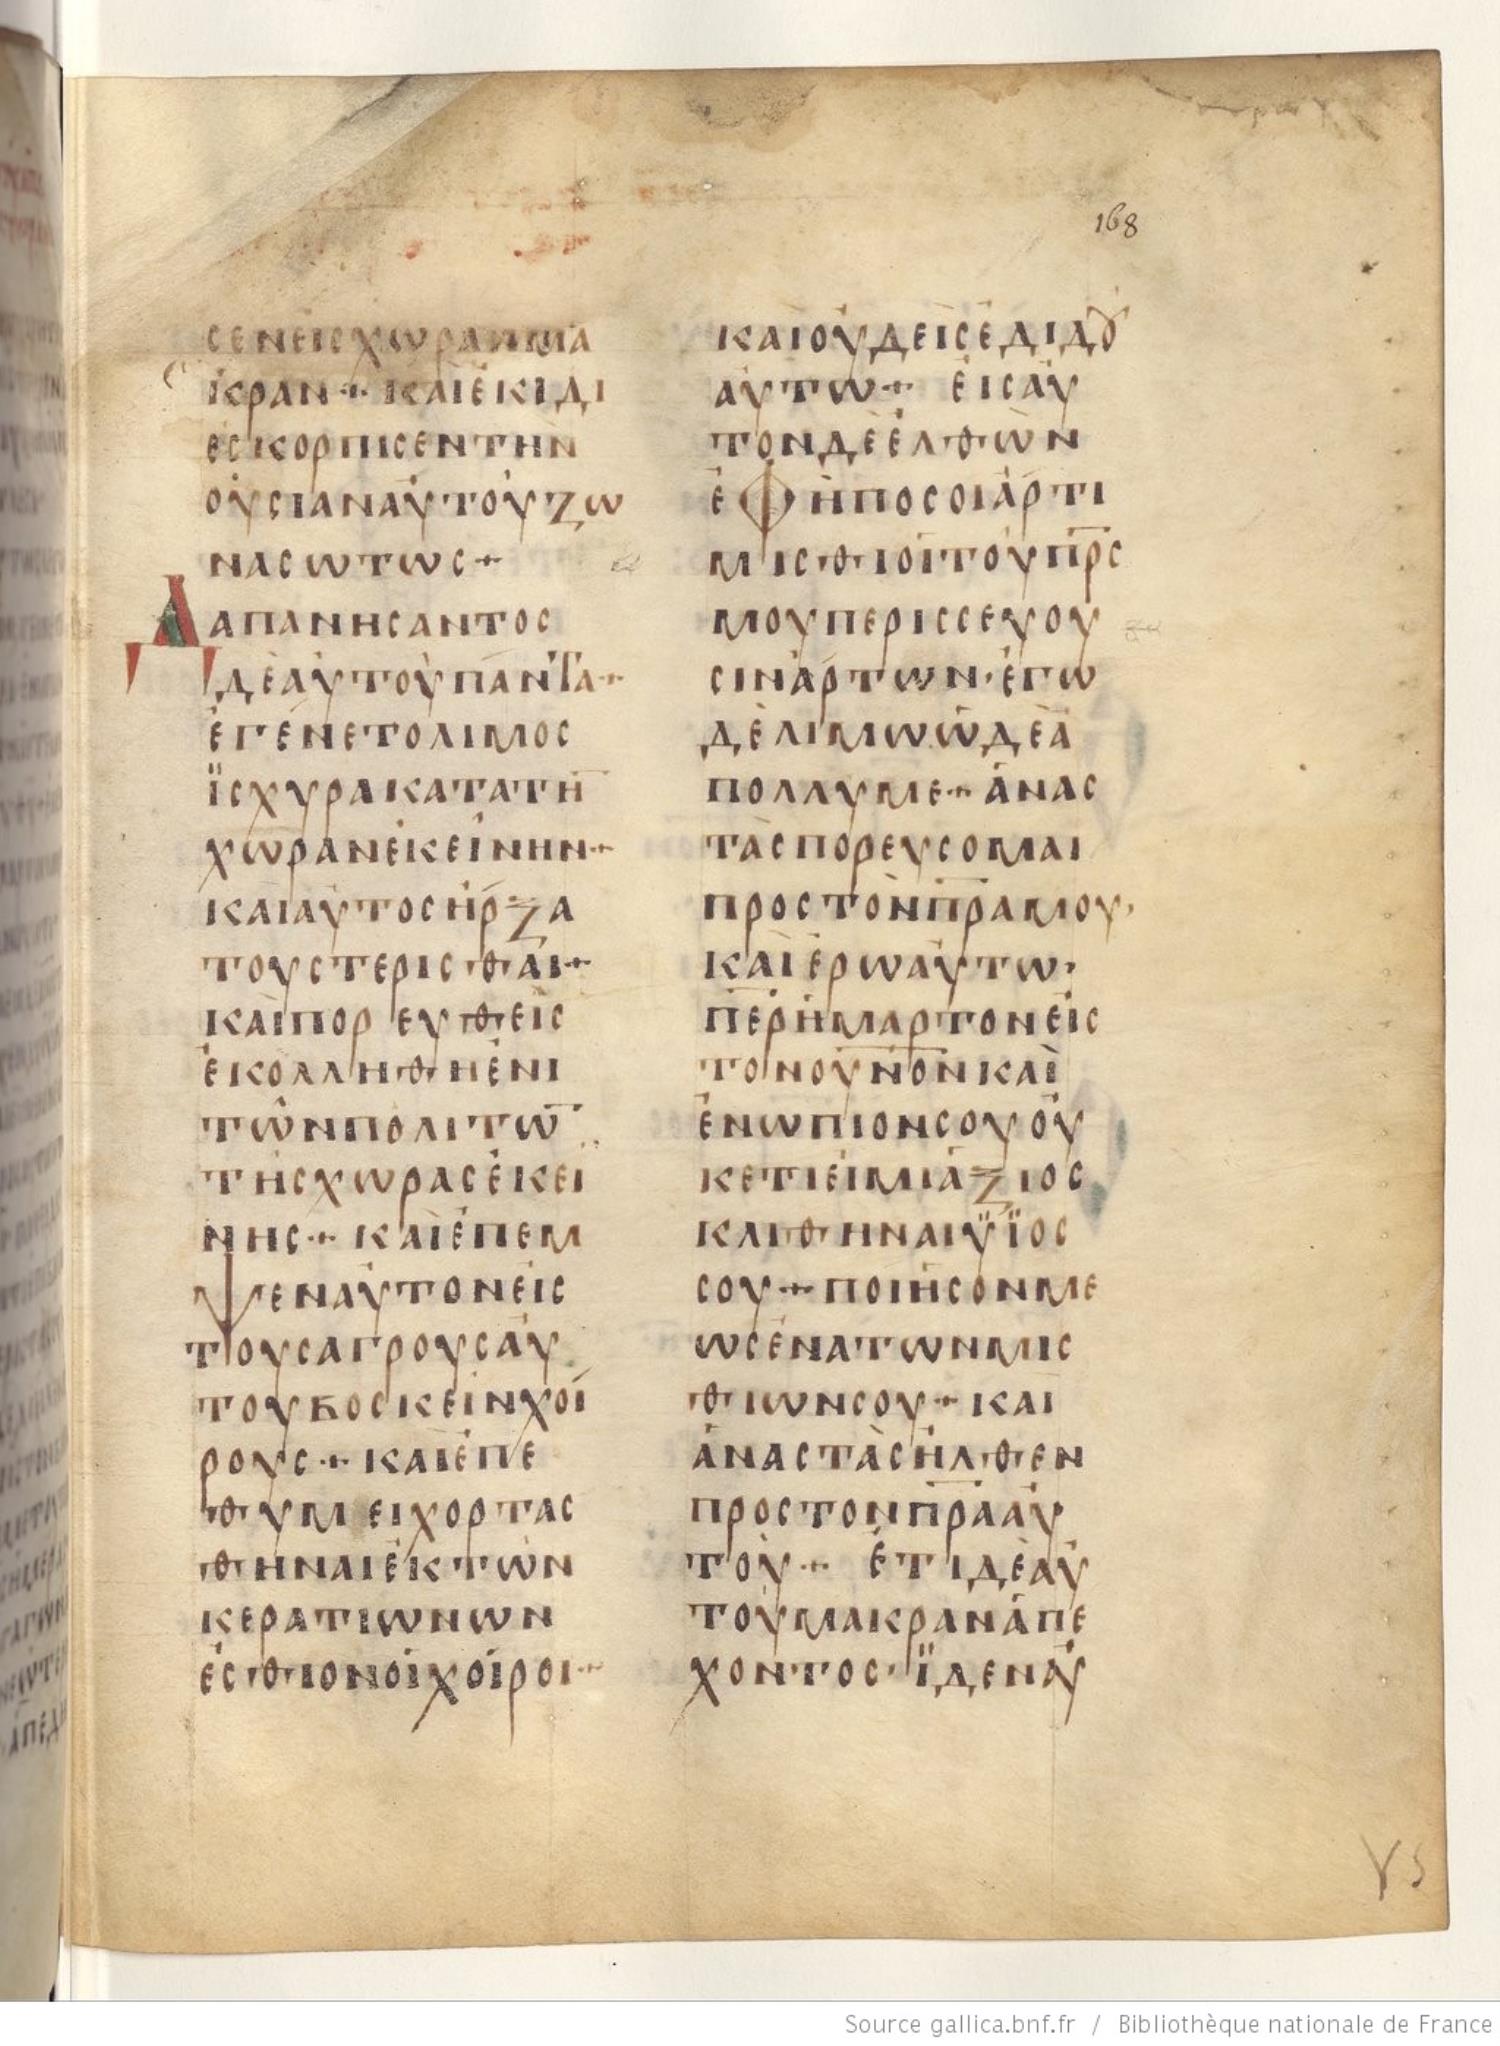 168
ϲενειϲχωρανμα
κραν+ καιεκιδι
εϲκορπιϲεντην
ουϲιαναυτουζω
ναϲωτωϲ+
Δαπανηϲαντοϲ
δεαυτουπαντα+
εγενετολιμοϲ
ϊϲχυρακατατη̅
χωρανεκεινην+
καιαυτοϲηρξα
τουϲτεριϲθαι+
καιπορευθειϲ
εκολληθηενι
τωνπολιτω̅
τηϲχωραϲεκει
νηϲ+ καιεπεμ
ψεναυτονειϲ
τουϲαγρουϲαυ
τουβοϲκεινχοι
ρουϲ+ καιεπε
θυμειχορταϲ
θηναιεκτων
κερατιωνων
εϲθιονοιχοιροι+
καιουδειϲεδιδȣ
αυτω+ ειϲαυ
τονδεελθων
εφηποϲοιαρτι
μιϲθιοιτουπ̅ρ̅ϲ
μουπεριϲϲευου
ϲιναρτων·εγω
δελιμωωδεα
πολλυμε+ αναϲ
ταϲπορευϲομαι
προϲτονπ̅ρ̅αμου·
καιερωαυτω·
π̅ε̅ρημαρτονειϲ
τονουν̅ο̅νκαι
ενωπιονϲουου
κετιειμιαξιοϲ
κλιθηναιϋϊοϲ
ϲου+ ποιηϲονμε
ωϲενατωνμιϲ
θιωνϲου+ και
αναϲταϲηλθεν
προϲτονπ̅ρ̅ααυ
του+ ετιδεαυ
τουμακραναπε
χοντοϲ·ϊδεναυ
Source gallica.bnf.fr / Bibliothèque nationale de France